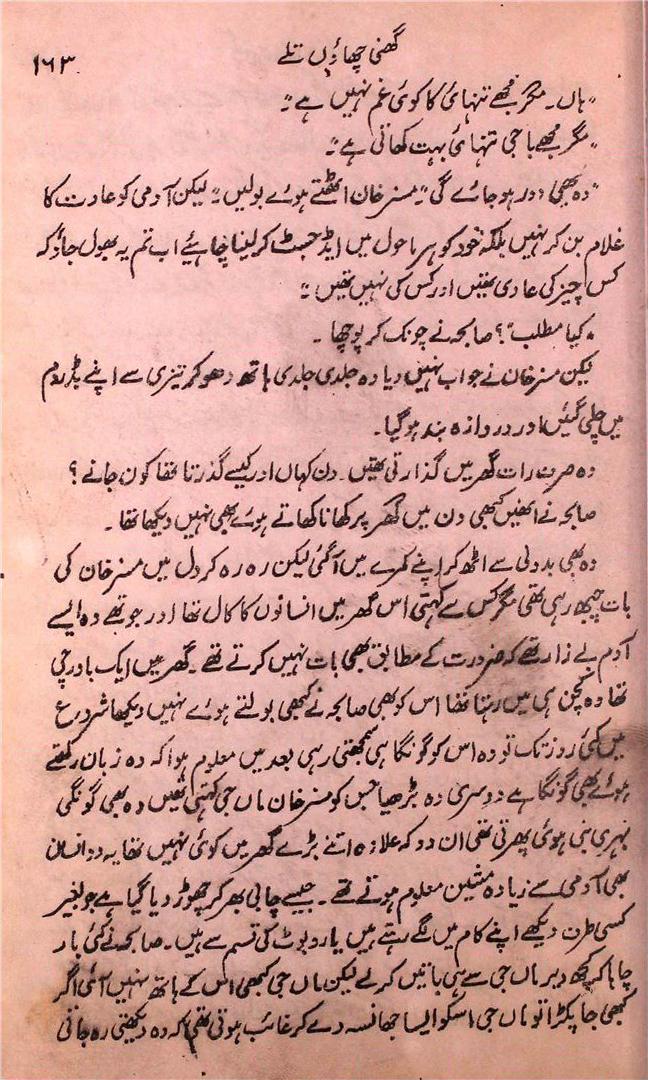 گھنی چھاؤں تلے
۱۶۳
"ہاں۔ مگر مجھے تنہائی کا کوئی غم نہیں ہے"۔
"مگر مجھے باجی تنہائی بہت کھاتی ہے"۔
"وہ بھی دور ہو جائے گی" مسز خان اٹھتے ہوئے بولیں"۔ لیکن آدمی کو عادت کا
غلام بن کر نہیں بلکہ خود کو ہر ماحول میں ایڈجسٹ کر لینا چاہئیے اب تم یہ بھول جاؤ کہ
کس چیز کی عادی تھیں اور کس کی نہیں تھیں"۔
"کیا مطلب"؟ صابحہ نے چونک کر پوچھا۔
لیکن مسز خان نے جواب نہیں دیا وہ جلدی جلدی ہاتھ دھو کر تیزی سے اپنے بڈ روم
میں چلی گئیں اور دروازہ بند ہو گیا۔
وہ صرف رات گھر میں گذارتی تھیں۔ دن کہاں اور کیسے گذرتا تھا کون جانے؟
صابحہ نے انھیں کبھی دن میں گھر پر کھانا کھاتے ہوئے بھی نہیں دیکھا تھا۔
وہ بھی بددلی سے اٹھ کر اپنے کمرے میں آگئی لیکن رہ رہ کر دل میں مسز خان کی
بات چبھ رہی تھی مگر کس سے کہتی اس گھر میں انسانوں کا کال تھا اور جو تھے وہ ایسے
آدم بے زار تھے کہ ضرورت کے مطابق بھی بات نہیں کرتے تھے۔ گھر میں ایک باورچی
تھا وہ کچن ہی میں رہتا تھا اس کو بھی صابحہ نے کبھی بولتے ہوئے نہیں دیکھا شروع
میں کئی روز تک تو وہ اس کو گونگا ہی سمجھتی رہی بعد میں معلوم ہوا کہ وہ زبان رکھتے
ہوئے بھی گونگا ہے دوسری وہ بڑھیا جس کو مسز خان ماں جی کہتی تھیں وہ بھی گونگی
بہری بنی ہوئی پھرتی تھی ان دو کے علاوہ اتنے بڑے گھر میں کوئی نہیں تھا یہ دو انسان
بھی آدمی سے زیادہ مشین معلوم ہوتے تھے۔ جیسے چابی بھر کر چھوڑ دیا گیا ہے جو بغیر
کسی طرف دیکھے اپنے کام میں لگے رہتے ہیں یا روبوٹ کی قسم سے ہیں۔ صابحہ نے کئی بار
چاہا کہ کچھ دیر ماں جی سے ہی باتیں کر لے لیکن ماں جی کبھی اس کے ہاتھ نہیں آئی اگر
کبھی جا پکڑا تو ماں جی اسکو ایسا جھانسہ دے کر غائب ہوتی تھی کہ وہ دیکھتی رہ جاتی